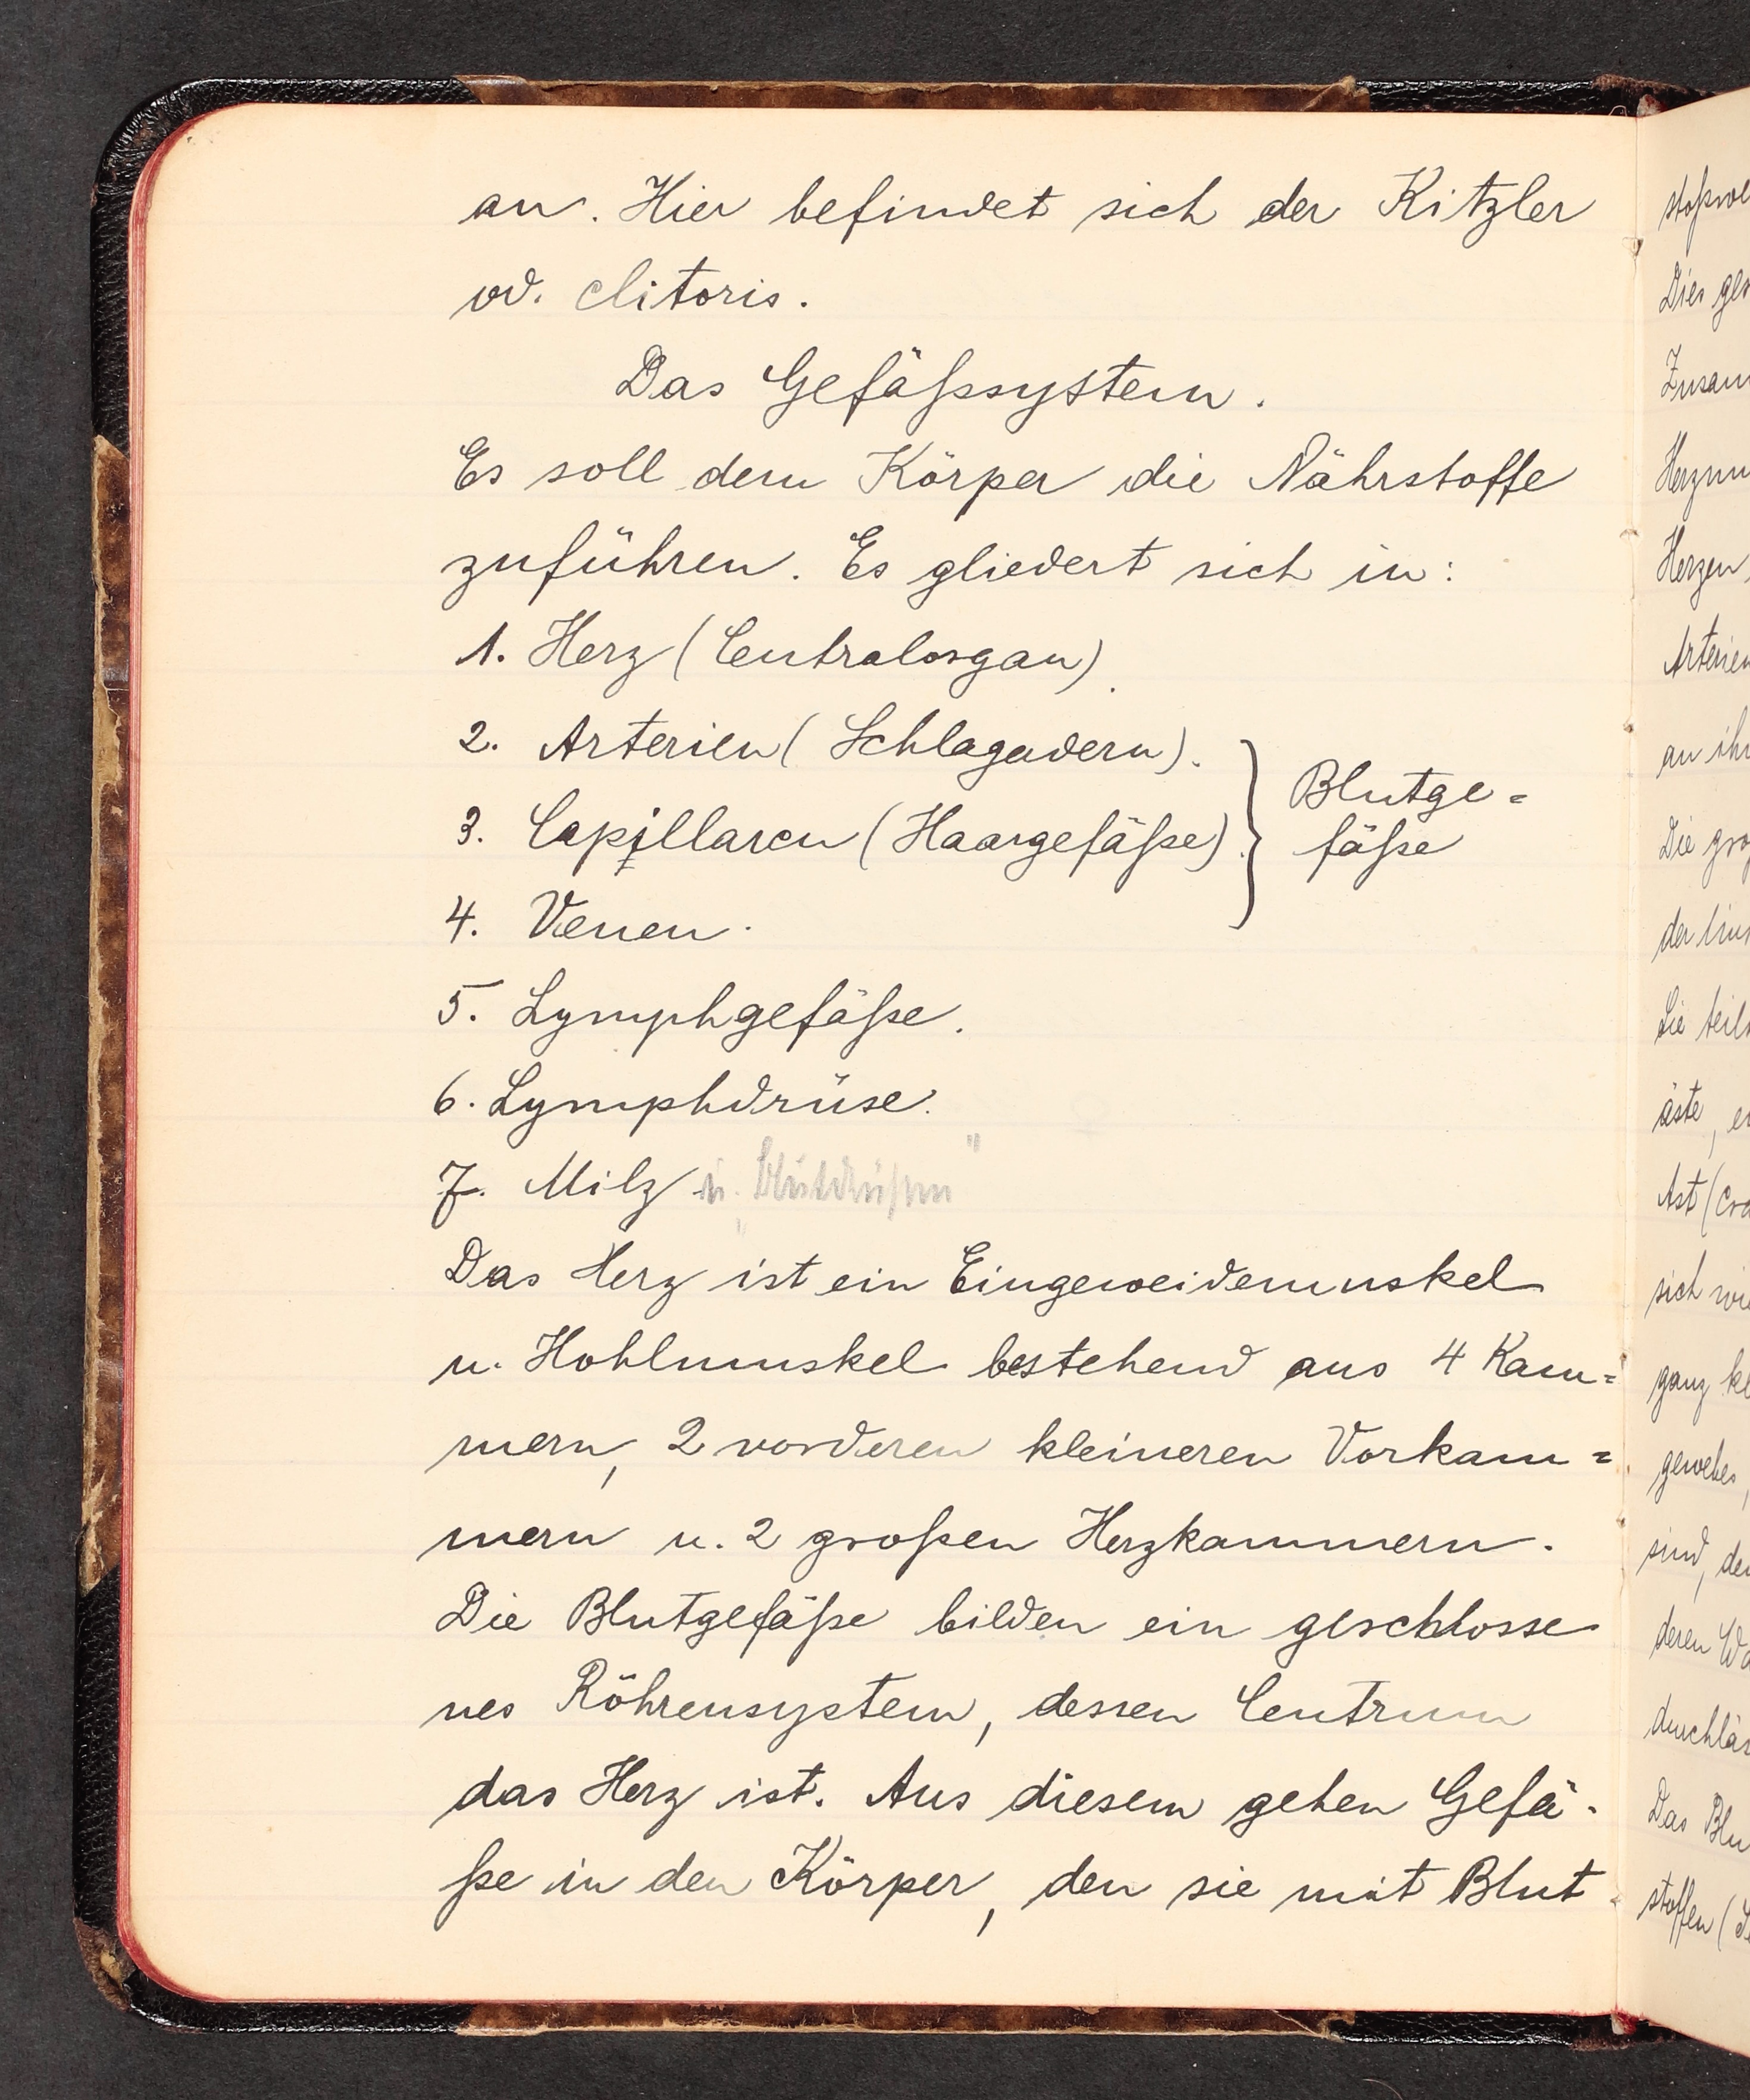 an. Hier befindet sich der Kitzler
od. clitoris.
Das Gefäßsystem.
Es soll dem Körper die Nährstoffe
zuführen. Es gliedert sich in:
1. Herz (Centralorgan).
2. Arterien (Schlagadern).
3. Capillaren (Haargefäße).
Blutge=
fäße
4. Venen.
5. Lymphgefäße.
6. Lymphdrüse.
7. Milz u. „Blutdrüsen"
Das Herz ist ein Eingeweidemuskel
u. Hohlmuskel bestehend aus 4 Kam=
mern, 2 vorderen kleineren Vorkam=
mern u. 2 großen Herzkammern.
Die Blutgefäße bilden ein geschlosse
nes Röhrensystem, dessen Centrum
das Herz ist. Aus diesem gehen Gefä-
ße in den Körper, den sie mit Blut
Dies
Herzen
Arterien
an
Die
der
Sie
äste,
Ast (
sich
ganz
gewebes,
sind,
deren
Das
stoffen (